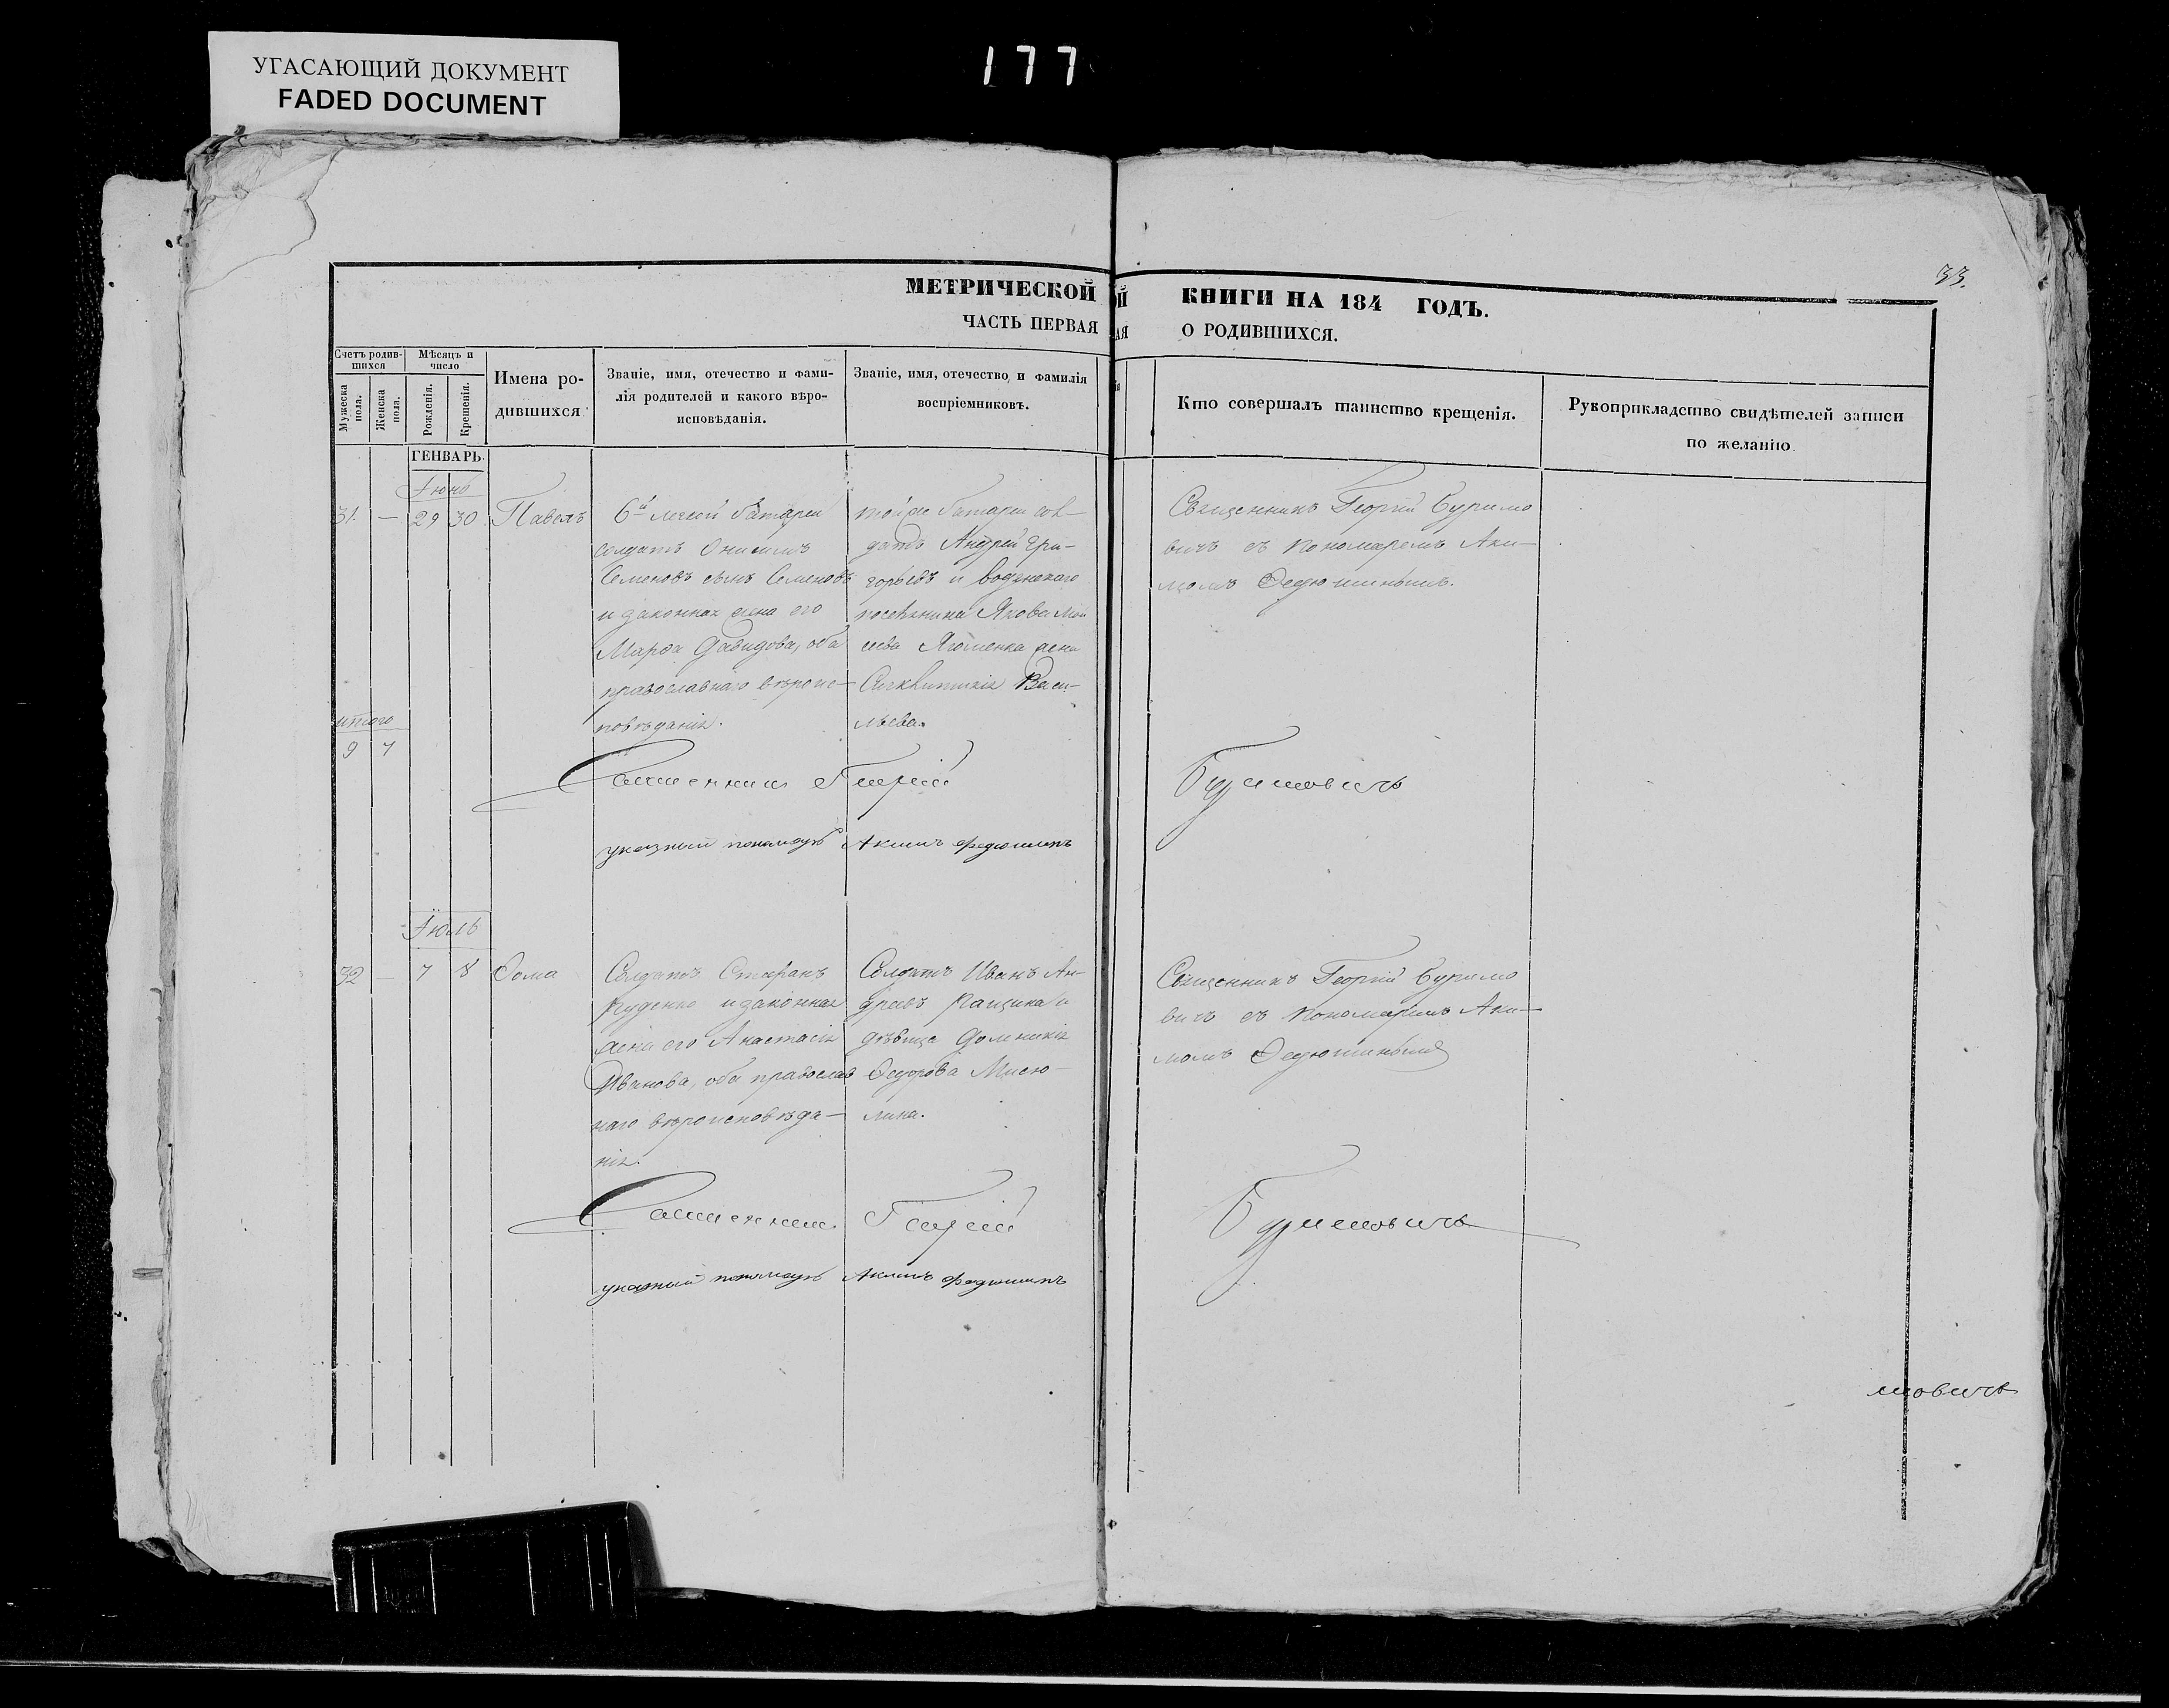 УГАСАЮЩИЙ ДОКУМЕНТ
FADED DOCUMENT
177
33.
МЕТРИЧЕСКОЙ
ОЙ КНИГИ НА 184 ГОДЪ.
ЧАСТЬ ПЕРВАЯ
АЯ О РОДИВШИХСЯ.
Счетъ родив-
шихся
Мужеска
пола.
Женска
пола.
Мѣсяцъ и
число
Рожденія.
Крещенія.
Имена ро-
дившихся
Званіе, имя, отечество и фами-
лія родителей и какого вѣро-
исповѣданія.
Званіе, имя, отечество, и фамилія
воспріемниковъ.
Кто совершалъ таинство крещенія.
Рукоприкладство свидѣтелей записи
по желанію.
ГЕНВАРЬ.
Іюнь
31. — 29 30 Павелъ
6й легкой батареи
солдатъ Онисимъ
Семеновъ сынъ Семеновъ
и законная жена его
Марѳа Давидова, оба
православнаго вѣроис-
повѣданія.
той же батареи сол-
датъ Андрей Гри-
горьевъ и
поселянина Якова
жена
Васи-
льева.
Священникъ Георгій Буримо
вичъ съ пономаремъ Аки-
момъ Ѳедюшинымъ.
итого
9 7
Священникъ Георгій Буримовичъ
указный пономарь Акимъ Федюшинъ
Іюль
32 — 7 8 Ѳома
Солдатъ Стефанъ
Руденко и законная
жена его Анастасія
Иванова, оба православ
наго вѣроисповѣда-
нія.
Солдатъ Иванъ Ан-
дреевъ Кащика и
дѣвица Домникія
Ѳедорова Мисю-
лина.
Священникъ Георгій Буримо
вичъ съ пономаремъ Аки-
момъ Ѳедюшинымъ
Священникъ Георгій Буримовичъ
указный пономарь Акимъ Федюшинъ
мовичъ